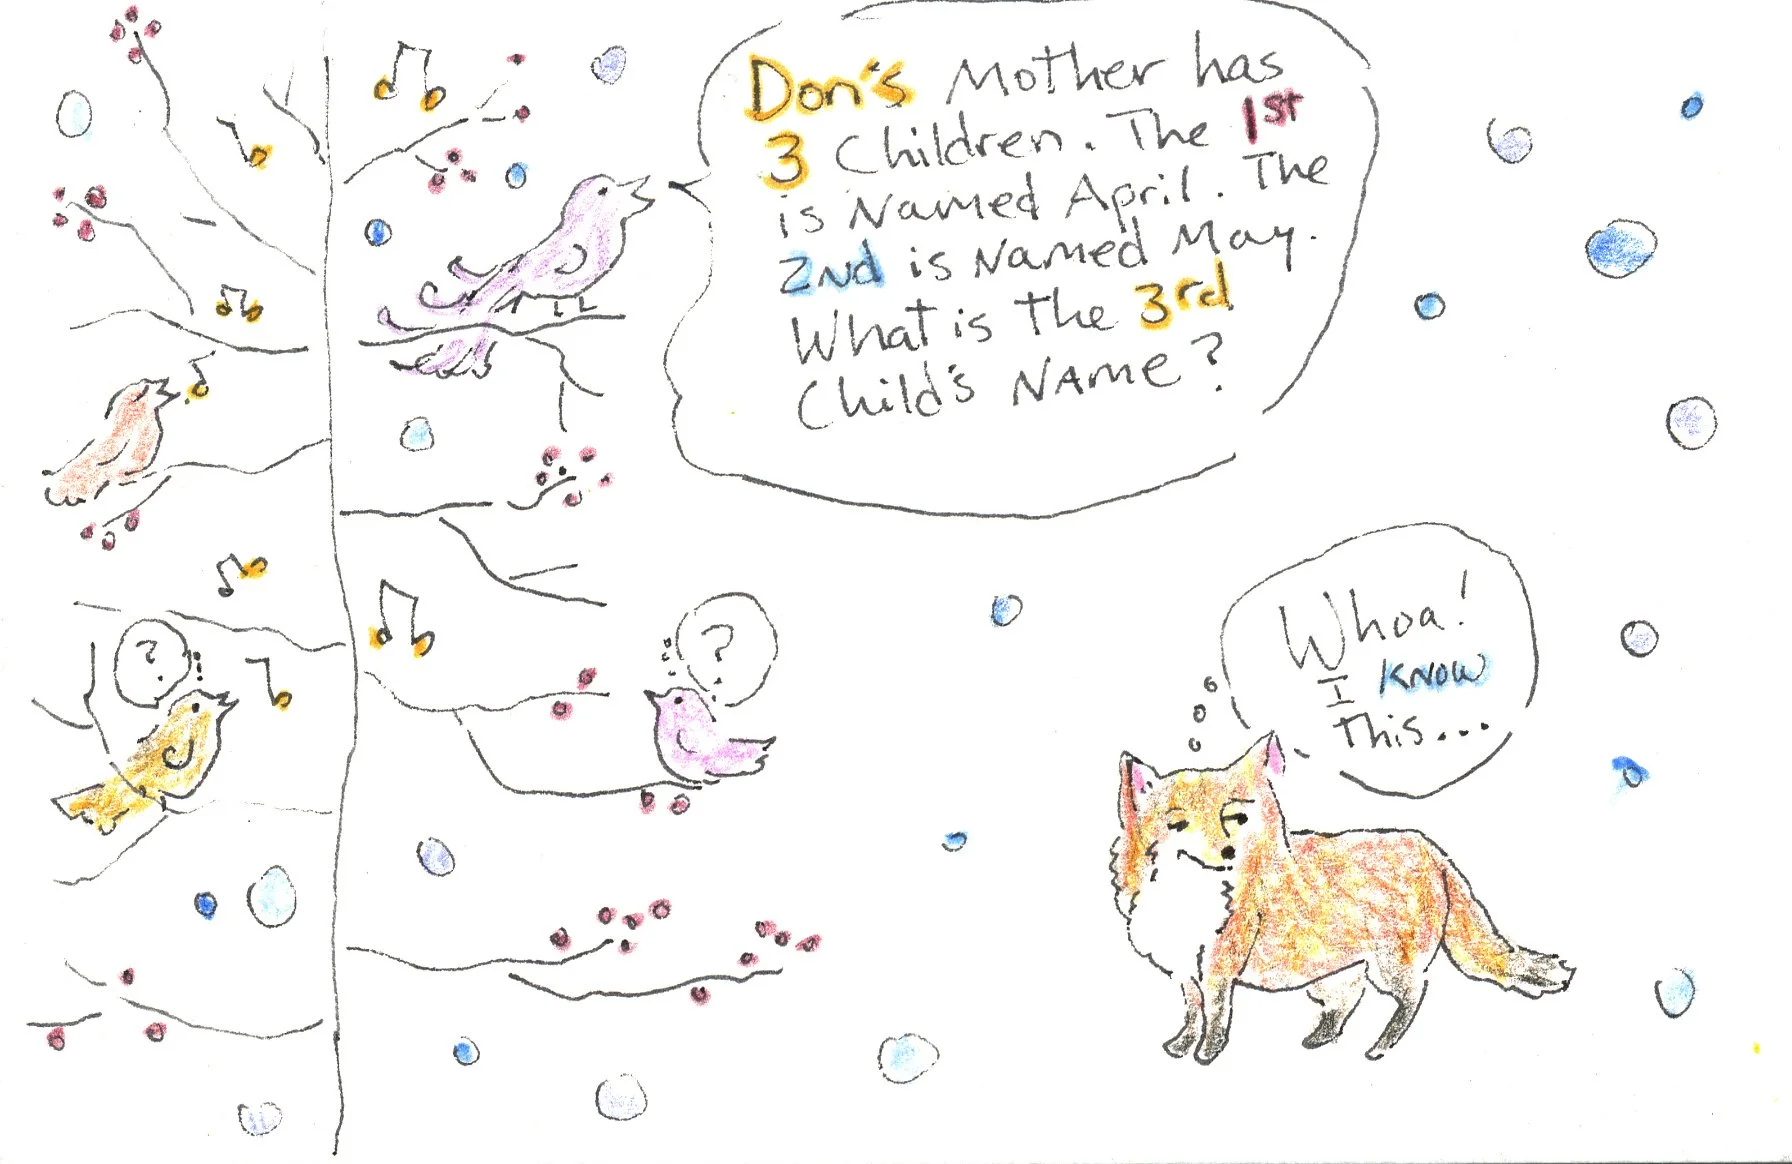 Don's Mother has
3 Children. The 1st
is Named April. The
2nd is Named May.
What is the 3rd
Child's Name?
?
?
Whoa!
I know
this...